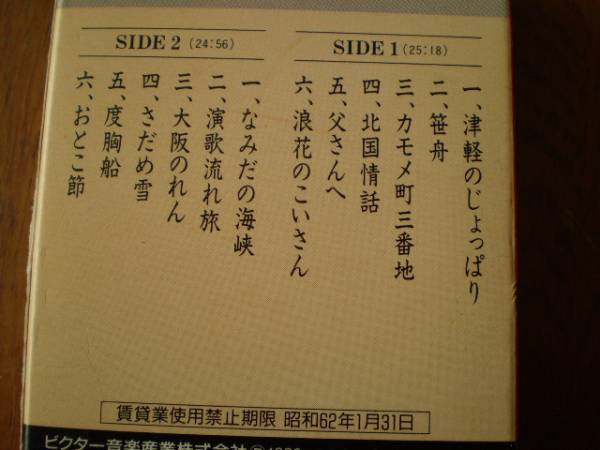 SIDE 1 (25:18)
一、津軽のじょっぱり
二、笹舟
三、カモメ町三番地
四、北国情話
五、父さんへ
六、浪花のこいさん
SIDE 2 (24:56)
一、なみだの海峡
二、演歌流れ旅
三、大阪のれん
四、さだめ雪
五、度胸船
六、おとこ節
賃貸業使用禁止期限 昭和62年1月31日
ビクター音楽産業株式会社